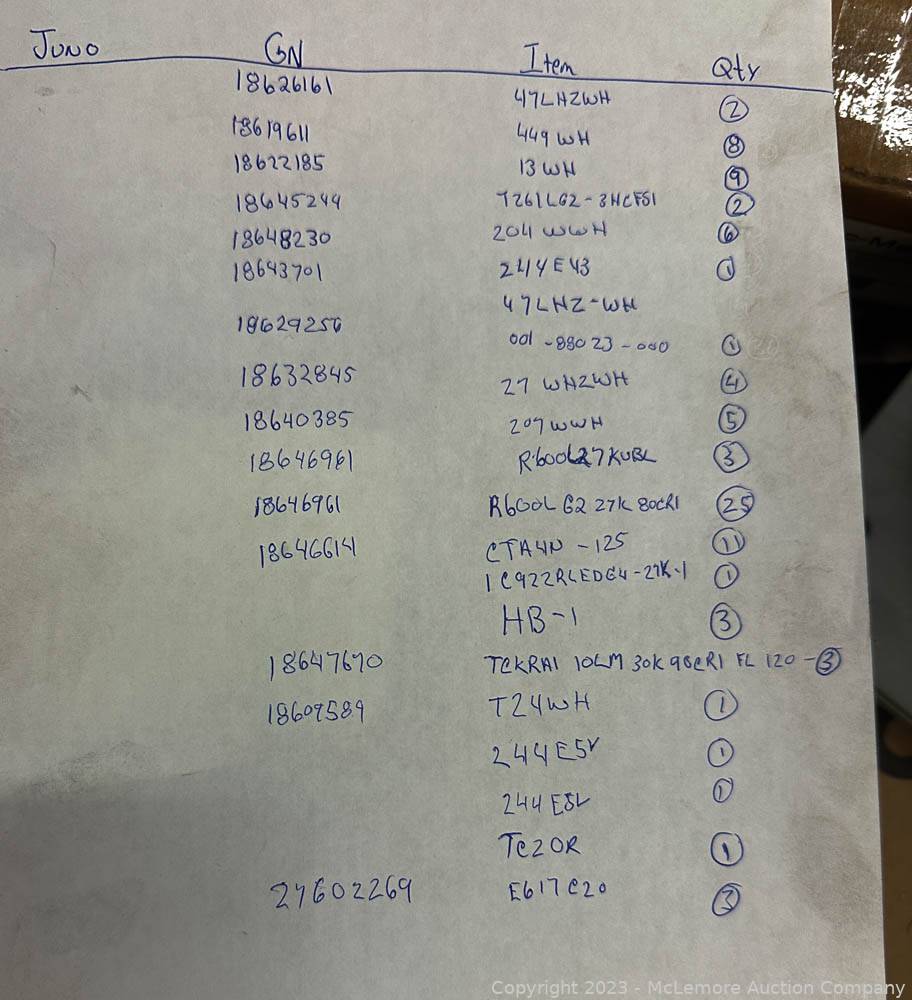 Juno GN Item Qty
18626161 47LHZWH 2
18619611 449 WH 8
18622185 13 WH 9
18645244 T261LG2-3HCFS1 2
18648230 204 WWH 6
18643701 244E43 1
47LHZ-WH
18629256 001-88023-000 1
18632845 27 WHZWH 4
18640385 207 WWH 5
18646961 3
18646961 R600L G2 27K 80CRI 25
18646614 CTA4N-125 11
1C922RLEDG4-27K-1 1
HB-1 3
18647670 TCKRA1 10LM 30K 90CRI FL 120 - 3
18609589 T24WH 1
244E5V 1
1
TC20R 1
27602269 E617C20 3
Copyright 2023 - McLemore Auction Company